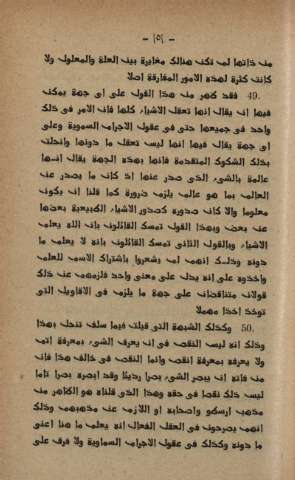 — ١٥١ —
من ذاتها لم تكن هنالك مغايرة بين العلة والمعلول ولا
كانت كثرة لهذه الامور المفارقة اصلا
49. فقد ظهر من هذا القول على اى جهة يمكن
فيها ان يقال انها تعقل الاشياء كلها فان الامر فى ذلك
واحد فى جميعها حتى فى عقول الاجرام السموية وعلى
اى جهة يقال فيها انها ليس تعقل ما دونها وانحلت
بذلك الشكوك المتقدمة فانها بهذه الجهة يقال انها
عالمة بالشىء الذى صدر عنها اذ كان ما يصدر عن
العالم بما هو عالم يلزم ضرورة كما قلنا ان يكون
معلوما والا كان صدوره كصدور الاشياء الطبيعية بعضها
عن بعض وبهذا القول تمسك القائلون بان الله يعلم
الاشياء وبالقول الثانى تمسك القائلون بانه لا يعلم ما
دونه وذلك انهم لم يشعروا باشتراك الاسم للعلم
واخذوه على انه يدل على معنى واحد فلزمهم عن ذلك
قولان متناقضان على جهة ما يلزم فى الاقاويل التى
توخذ اخذا مهملا
50. وكذلك الشبهة التى قيلت فيما سلف تنحل بهذا
وذلك انه ليس النقص فى ان يعرف الشىء بمعرفة اتم
ولا يعرفه بمعرفة انقص وانما النقص فى خلاف هذا فان
من فاته ان يبصر الشىء بصرا رديئا وقد ابصره بصرا تاما
ليس ذلك نقصا فى حقه وهذا الذى قلناه هو الظاهر من
مذهب ارسطو واصحابه او اللازم عن مذهبهم وذلك
انهم يصرحون فى العقل الفعال انه يعلم ما هنا اعنى
ما دونه وكذلك فى عقول الاجرام السموية ولا فرق على